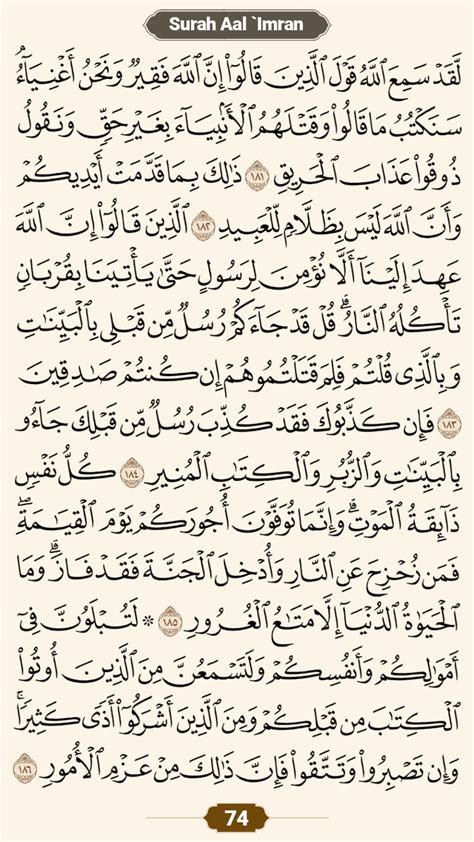 Surah Aal `Imran
لَّقَدْ سَمِعَ ٱللَّهُ قَوْلَ ٱلَّذِينَ قَالُوٓا۟ إِنَّ ٱللَّهَ فَقِيرٌ وَنَحْنُ أَغْنِيَآءُ ۘ
سَنَكْتُبُ مَا قَالُوا۟ وَقَتْلَهُمُ ٱلْأَنۢبِيَآءَ بِغَيْرِ حَقٍّ وَنَقُولُ
ذُوقُوا۟ عَذَابَ ٱلْحَرِيقِ ١٨١ ذَٰلِكَ بِمَا قَدَّمَتْ أَيْدِيكُمْ
وَأَنَّ ٱللَّهَ لَيْسَ بِظَلَّامٍ لِّلْعَبِيدِ ١٨٢ ٱلَّذِينَ قَالُوٓا۟ إِنَّ ٱللَّهَ
عَهِدَ إِلَيْنَآ أَلَّا نُؤْمِنَ لِرَسُولٍ حَتَّىٰ يَأْتِيَنَا بِقُرْبَانٍ
تَأْكُلُهُ ٱلنَّارُ ۗ قُلْ قَدْ جَآءَكُمْ رُسُلٌ مِّن قَبْلِى بِٱلْبَيِّنَٰتِ
وَبِٱلَّذِى قُلْتُمْ فَلِمَ قَتَلْتُمُوهُمْ إِن كُنتُمْ صَٰدِقِينَ
١٨٣ فَإِن كَذَّبُوكَ فَقَدْ كُذِّبَ رُسُلٌ مِّن قَبْلِكَ جَآءُو
بِٱلْبَيِّنَٰتِ وَٱلزُّبُرِ وَٱلْكِتَٰبِ ٱلْمُنِيرِ ١٨٤ كُلُّ نَفْسٍ
ذَآئِقَةُ ٱلْمَوْتِ ۗ وَإِنَّمَا تُوَفَّوْنَ أُجُورَكُمْ يَوْمَ ٱلْقِيَٰمَةِ ۖ
فَمَن زُحْزِحَ عَنِ ٱلنَّارِ وَأُدْخِلَ ٱلْجَنَّةَ فَقَدْ فَازَ ۗ وَمَا
ٱلْحَيَوٰةُ ٱلدُّنْيَآ إِلَّا مَتَٰعُ ٱلْغُرُورِ ١٨٥ ۞ لَتُبْلَوُنَّ فِىٓ
أَمْوَٰلِكُمْ وَأَنفُسِكُمْ وَلَتَسْمَعُنَّ مِنَ ٱلَّذِينَ أُوتُوا۟
ٱلْكِتَٰبَ مِن قَبْلِكُمْ وَمِنَ ٱلَّذِينَ أَشْرَكُوٓا۟ أَذًى كَثِيرًا ۚ
وَإِن تَصْبِرُوا۟ وَتَتَّقُوا۟ فَإِنَّ ذَٰلِكَ مِنْ عَزْمِ ٱلْأُمُورِ ١٨٦
74